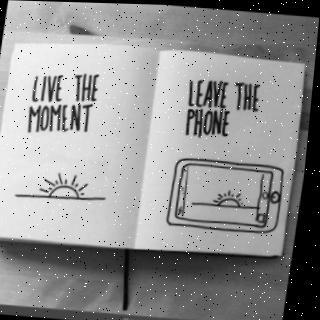 LIVE THE
MOMENT
LEAVE THE
PHONE